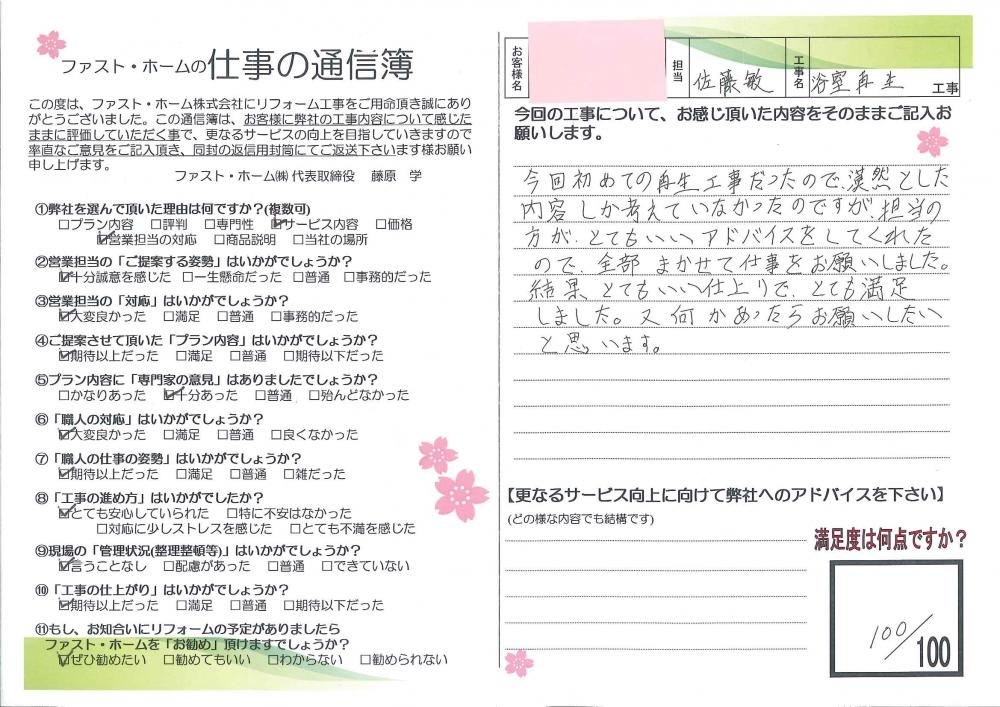 ファスト・ホームの仕事の通信簿
この度は、ファスト・ホーム株式会社にリフォーム工事をご用命頂き誠にあり
がとうございました。この通信簿は、お客様に弊社の工事内容について感じた
ままに評価していただく事で、更なるサービスの向上を目指していきますので
率直なご意見をご記入頂き、同封の返信用封筒にてご返送下さいます様お願い
申し上げます。
ファスト・ホーム㈱ 代表取締役 藤原 学
①弊社を選んで頂いた理由は何ですか?(複数可)
□プラン内容 □評判 □専門性 ☑サービス内容 □価格
☑営業担当の対応 □商品説明 □当社の場所
②営業担当の「ご提案する姿勢」はいかがでしょうか?
☑十分誠意を感じた □一生懸命だった □普通 □事務的だった
③営業担当の「対応」はいかがでしょうか?
☑大変良かった □満足 □普通 □事務的だった
④ご提案させて頂いた「プラン内容」はいかがでしょうか?
☑期待以上だった □満足 □普通 □期待以下だった
⑤プラン内容に「専門家の意見」はありましたでしょうか?
□かなりあった ☑十分あった □普通 □殆んどなかった
⑥「職人の対応」はいかがでしょうか?
☑大変良かった □満足 □普通 □良くなかった
⑦「職人の仕事の姿勢」はいかがでしょうか?
☑期待以上だった □満足 □普通 □雑だった
⑧「工事の進め方」はいかがでしたか?
☑とても安心していられた □特に不安はなかった
□対応に少しストレスを感じた □とても不満を感じた
⑨現場の「管理状況(整理整頓等)」はいかがでしょうか?
☑言うことなし □配慮があった □普通 □できていない
⑩「工事の仕上がり」はいかがでしょうか?
☑期待以上だった □満足 □普通 □期待以下だった
⑪もし、お知合いにリフォームの予定がありましたら
ファスト・ホームを「お勧め」頂けますでしょうか?
☑ぜひ勧めたい □勧めてもいい □わからない □勧められない
お客様名 担当 佐藤敏 工事名 浴室再生 工事
今回の工事について、お感じ頂いた内容をそのままご記入お
願いします。
今回初めての再生工事だったので、漠然とした
内容しか考えていなかったのですが、担当の
方が、とてもいいアドバイスをしてくれた
ので、全部まかせて仕事をお願いしました。
結果、とてもいい仕上りで、とても満足
しました。又何かあったらお願いしたい
と思います。
【更なるサービス向上に向けて弊社へのアドバイスを下さい】
(どの様な内容でも結構です)
満足度は何点ですか?
100/100